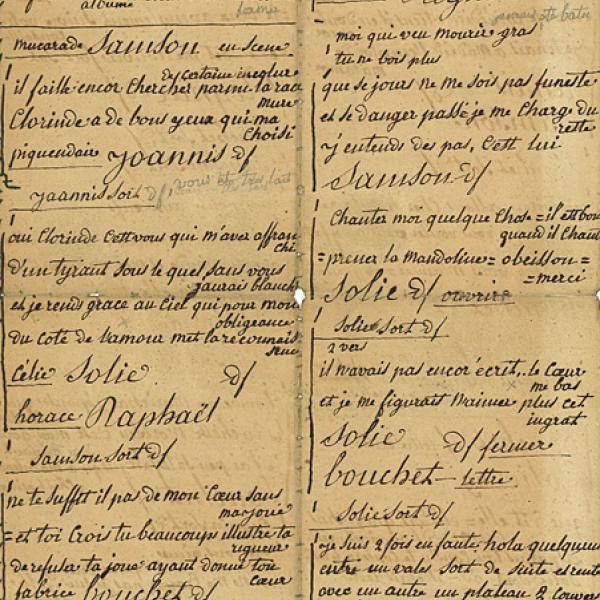 albume
mucarade Samson. en scene
il faille encor chercher parmi la race
de certaine
mure
Clorinde a de bous yeux qui ma
choisi
piquendaire yoannis d/
yoannis sort d/ vous
oui Clorinde C'est vous qui m'avez affran
chi
d'un tyrant sous le quel sans vous
j'aurais blanchi
et je rends grace au Ciel qui pour mon
obligeance
du Coté de l'amour met la reconnais
sance
Célie Solie d/
horace Raphaël
Samson sort d/
ne te suffit il pas de mon Cœur sans
= et toi Crois tu beaucoup illustre ta
rigueur
de refuser ta joue ayant donné ton
cœur
fabrice bouchet d/
jamais été batu
moi qui veu mourir gras
tu ne bois plus
que se jours ne me sois pas funeste
et se danger passé je me Charge du
reste
j'y entends des pas, C'est lui
Samson d/
Chanter moi quelque Chose = il est bon
quand il Chant
= prener la Mandoline = obeisson =
= merci
Solie d/ ouvrire
Solie sort d/
2 vers
il n'avais pas encor écrit,. le Cœur
me bas
et je me figurais n'aimer plus cet
ingrat
Solie d/ fermer
bouchet — lettre
Solie sort d/
je suis 2 fois en faute, hola quelqu'un
entre un valet sort de suite et entre
avec un autre un plateau 2 Couver